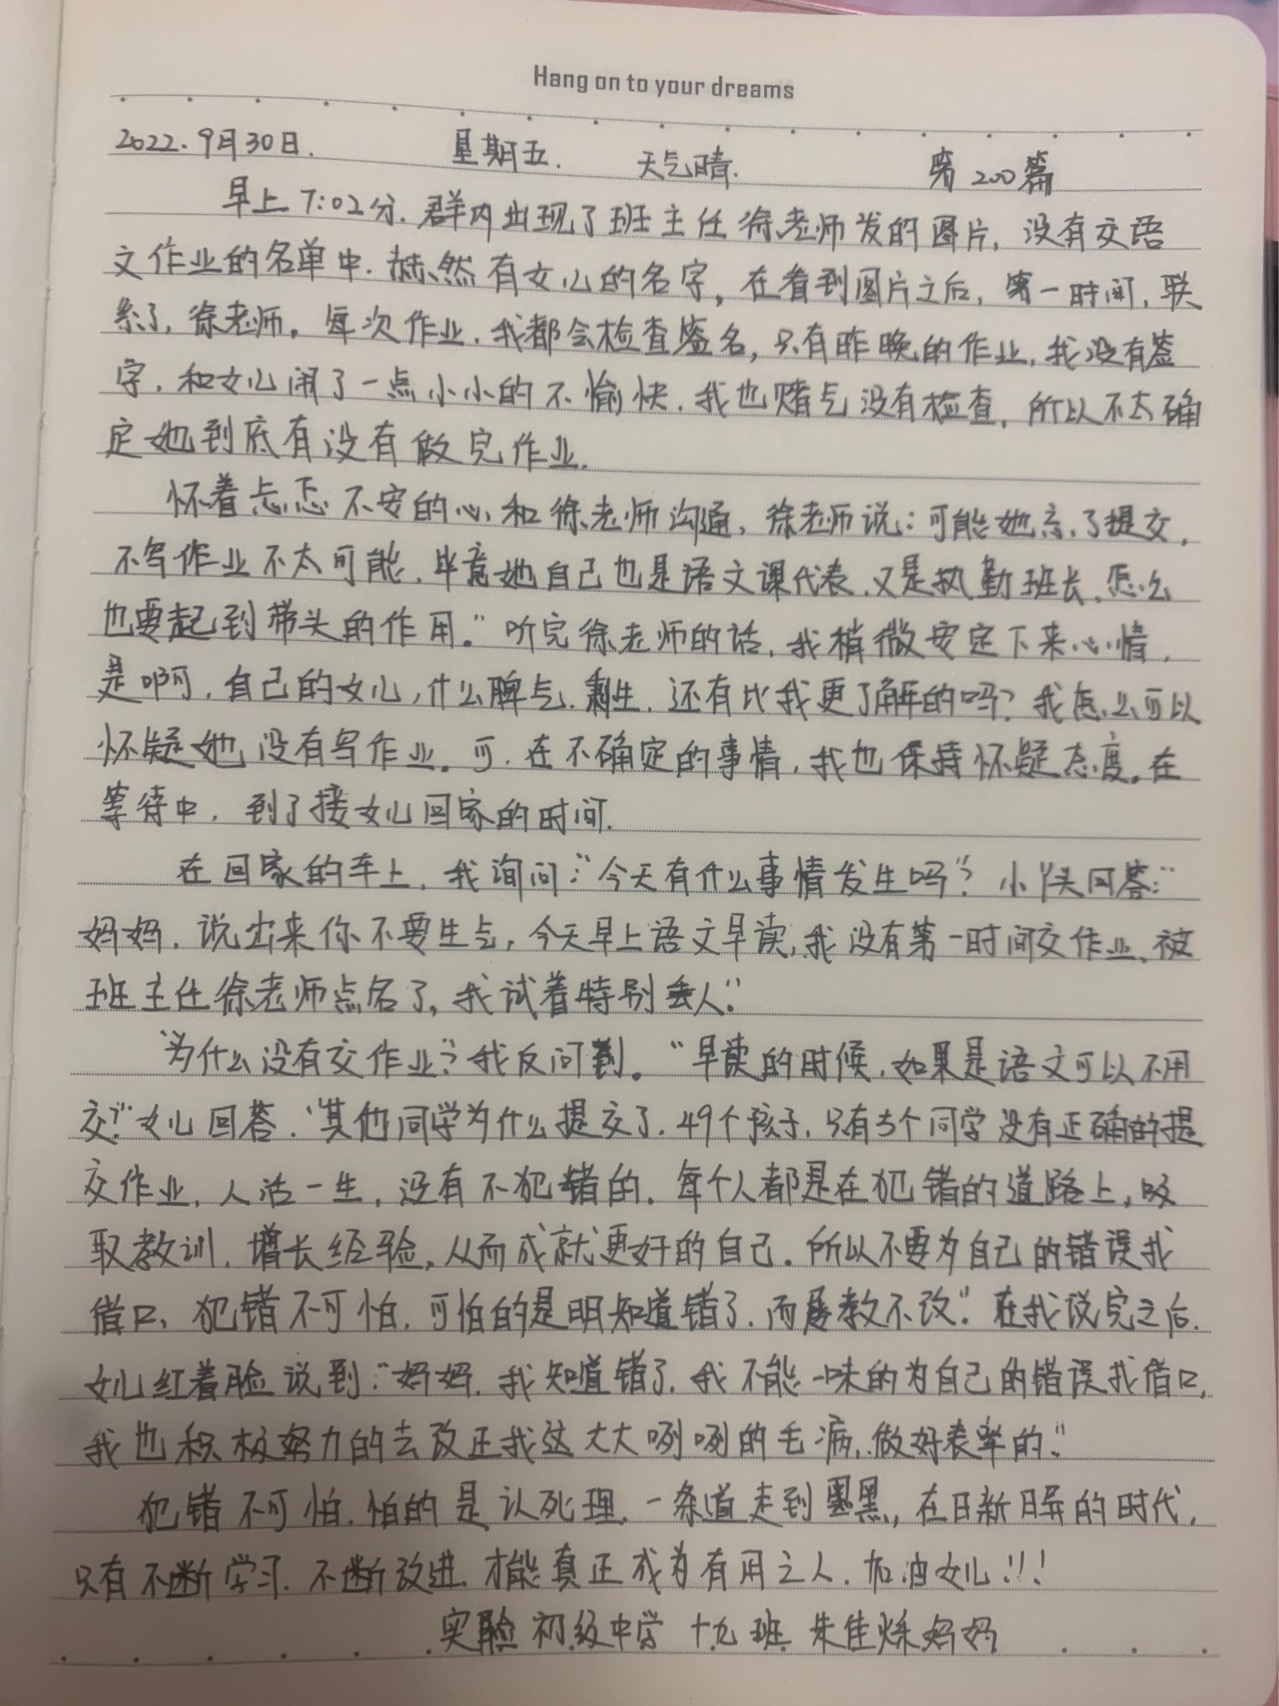 Hang on to your dreams
2022.9月30日. 星期五. 天气晴. 第200篇
早上7:02分.群内出现了班主任徐老师发的图片,没有交语
文作业的名单中.赫然有女儿的名字,在看到图片之后,第一时间,联
系了,徐老师。每次作业,我都会检查签名,只有昨晚的作业,我没有签
字,和女儿闹了一点小小的不愉快,我也赌气没有检查,所以不太确
定她到底有没有做完作业.
怀着忐忑不安的心和徐老师沟通,徐老师说:可能她忘了提交,
不写作业不太可能.毕竟她自己也是语文课代表,又是执勤班长,怎么
也要起到带头的作用。"听完徐老师的话,我稍微安定下来心情,
是啊,自己的女儿,什么脾气、,还有比我更了解的吗?我怎么可以
怀疑她没有写作业。可,在不确定的事情,我也保持怀疑态度。在
等待中,到了接女儿回家的时间.
在回家的车上,我询问:"今天有什么事情发生吗?小丫头回答:"
妈妈,说出来你不要生气,今天早上语文早读,我没有第一时间交作业,被
班主任徐老师点名了,我试着特别丢人."
"为什么没有交作业?"我反问到。"早读的时候,如果是语文可以不用
交"女儿回答."其他同学为什么提交了,49个孩子,只有5个同学没有正确的提
交作业,人活一生,没有不犯错的.每个人都是在犯错的道路上,吸
取教训,增长经验,从而成就更好的自己.所以不要为自己的错误找
借口,犯错不可怕,可怕的是明知道错了,而屡教不改."在我说完之后,
女儿红着脸说到:"妈妈,我知道错了,我不能一味的为自己的错误找借口,
我也积极努力的去改正我这大大咧咧的毛病,做好表率的."
犯错不可怕,怕的是认死理,一条道走到墨黑,在日新月异的时代,
只有不断学习,不断改进,才能真正成为有用之人.加油女儿!!!
实验初级中学 十九班 朱佳烁妈妈